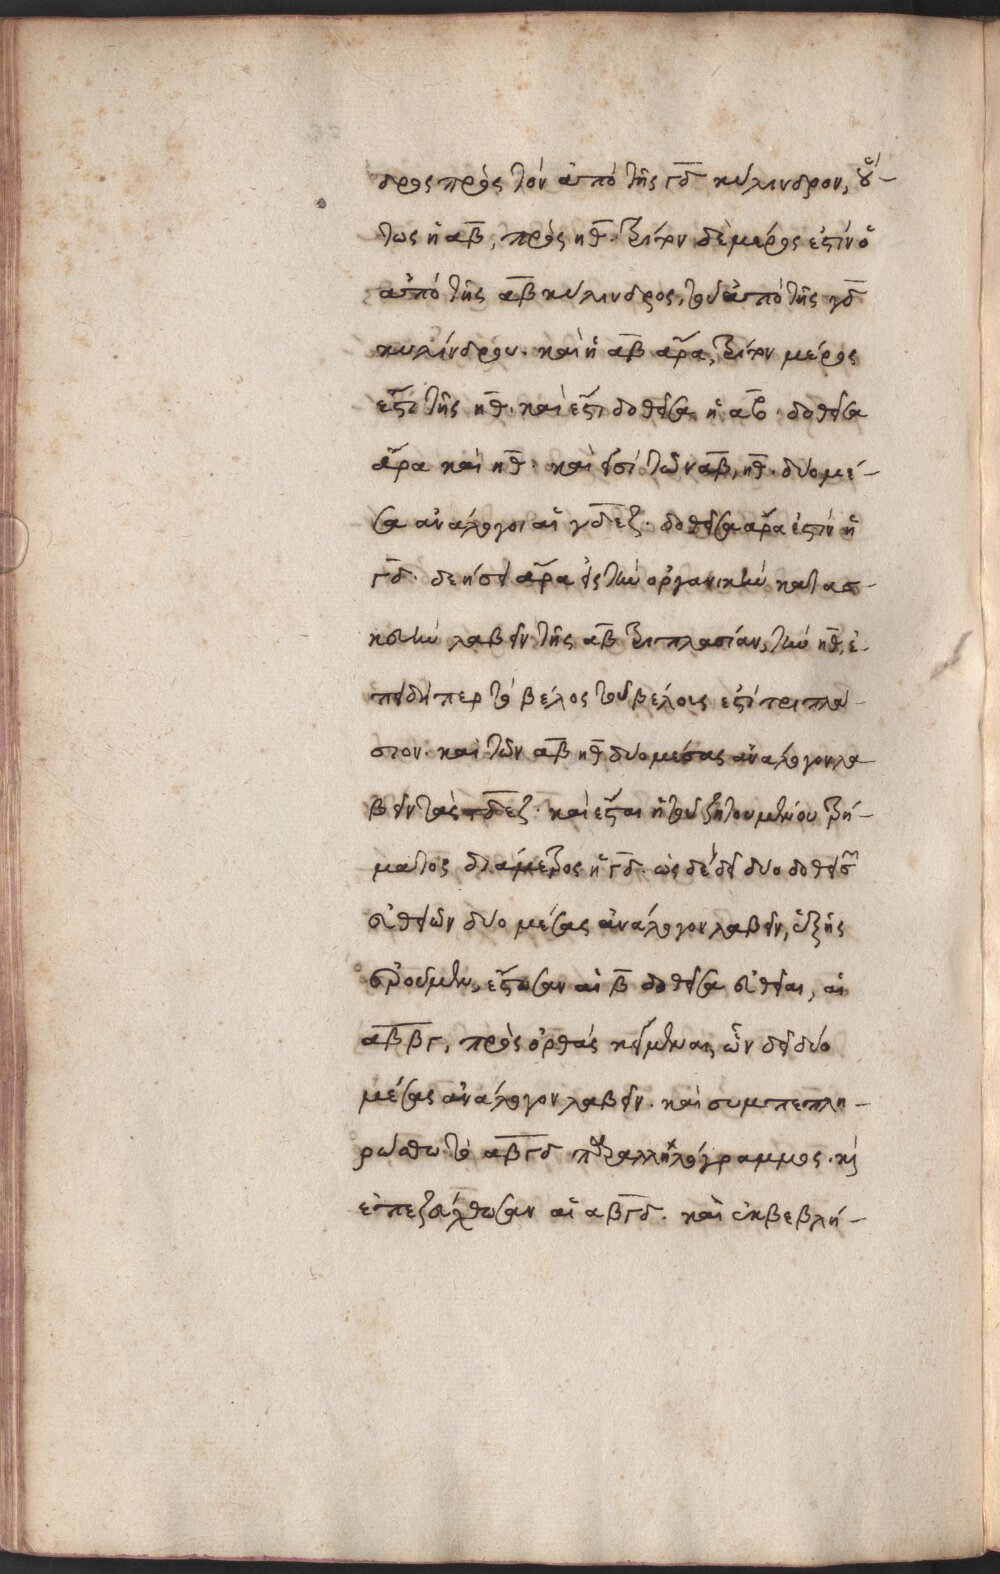 δρος πρὸς τὸν ἀπὸ τῆς γδ κύλινδρον, οὕ-
τως ἡ αβ, πρὸς ηθ. τρίτον δὲ μέρος ἐστὶν ὁ
ἀπὸ τῆς αβ κύλινδρος, τοῦ ἀπὸ τῆς γδ
κυλίνδρου. καὶ ἡ αβ ἄρα, τρίτον μέρος
ἐστὶ τῆς ηθ. καὶ ἐστὶ δοθεῖσα ἡ αβ. δοθεῖσα
ἄρα καὶ ηθ. καὶ εἰσὶ τῶν αβ, ηθ. δύο μέ-
σα ἀνάλογοι αἱ γδ εζ. δοθεῖσα ἄρα ἐστὶν ἡ
γδ. δεήσει ἄρα εἰς τὴν ὀργανικὴν κατασ-
κευὴν λαβεῖν τῆς αβ τριπλασίαν, τὴν ηθ, ἐ-
πειδήπερ τὸ βέλος τοῦ βέλους ἐστὶ τριπλά-
σιον. καὶ τῶν αβ ηθ δύο μέσας ἀνάλογον λα-
βεῖν τὰς γδ εζ. καὶ ἔσται ἡ τοῦ ζητουμένου τρή-
ματος διάμετρος ἡ γδ. ὡς δὲ δεῖ δύο δοθεισῶν
εὐθειῶν δύο μέσας ἀνάλογον λαβεῖν, ἑξῆς
ἐροῦμεν, ἔστωσαν αἱ β δοθεῖσα εὐθεῖαι, αἱ
αβ βγ, πρὸς ὀρθὰς κείμεναι, ὧν δεῖ δύο
μέσας ἀνάλογον λαβεῖν. καὶ συμπεπλη-
ρώσθω τὸ αβγδ παραλληλόγραμμος. κὶ
ἐπεζεύχθωσαν αἱ αβγδ. καὶ ἐκβεβλή-